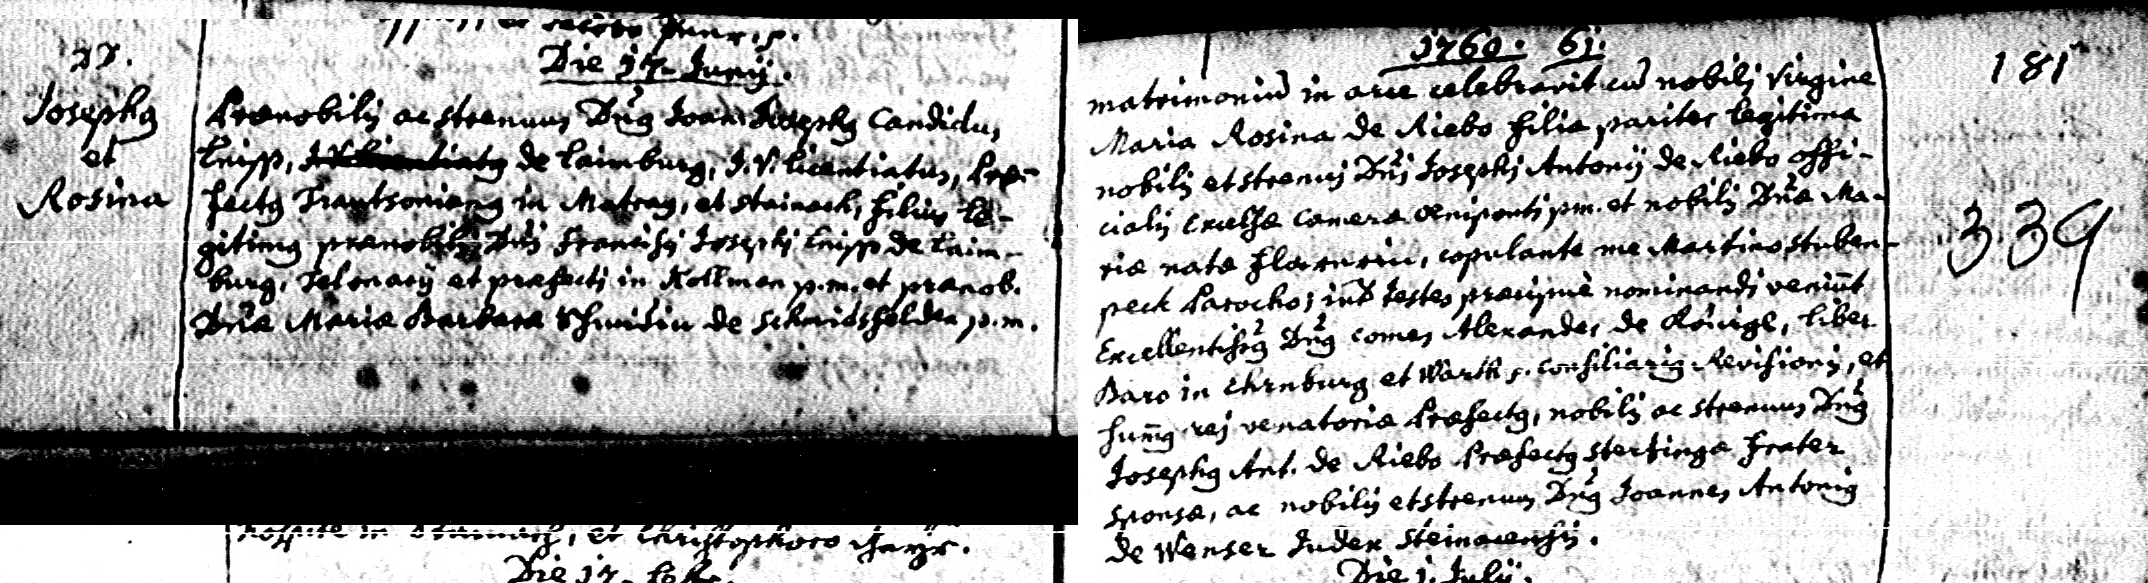 et Jacobo
Die 17. Junij.
27.
Josephg
et
Rosina
Prænobilis ac strenuus Dn̄g Joan Josephg Candidus
Leiss, de Laimburg, J. V. Licentiatus, Præ-
fectg Trautsoniang in Matray, et Stainach, filius le-
gitimg prænobilis Dn̄j Francisj Josephj Leiss de Laim-
burg, Telonarij et præfectj in Kollman p.m. et prænob.
Dn̄æ Mariæ Barbaræ Schmidin de Schmidsfelden p.m.
hospite in Stainach, et Christophoro Mayr.
Die 17. 7bris.
1760. 61.
181
339
matrimoniū in arce celebravit cū nobilj Virgine
Maria Rosina de Riebo filia pariter legitima
nobilis et strenuj Dn̄j Josephj Antonij de Riebo offi-
cialis Excelsæ Cameræ Oenipontj p.m. et nobilis Dn̄æ Ma-
riæ natæ, copulante me Martino Stuben-
peck Parocho; int̄ testes præcipuè nominandj veniūt
Excellentissg Dn̄g Comes Alexander de Künigl, Liber
Baro in Ehrnburg et Warth p. consiliarig Revisionis, et
sum̄g rej venatoriæ Præfectg, nobilis ac strenuus Dn̄g
Josephg Ant. de Riebo Præfectg Sterzingæ frater
sponsæ, ac nobilis et strenuus Dn̄g Joannes Antonig
de Wenser Judex Steinacensis.
Die 1. Julij.